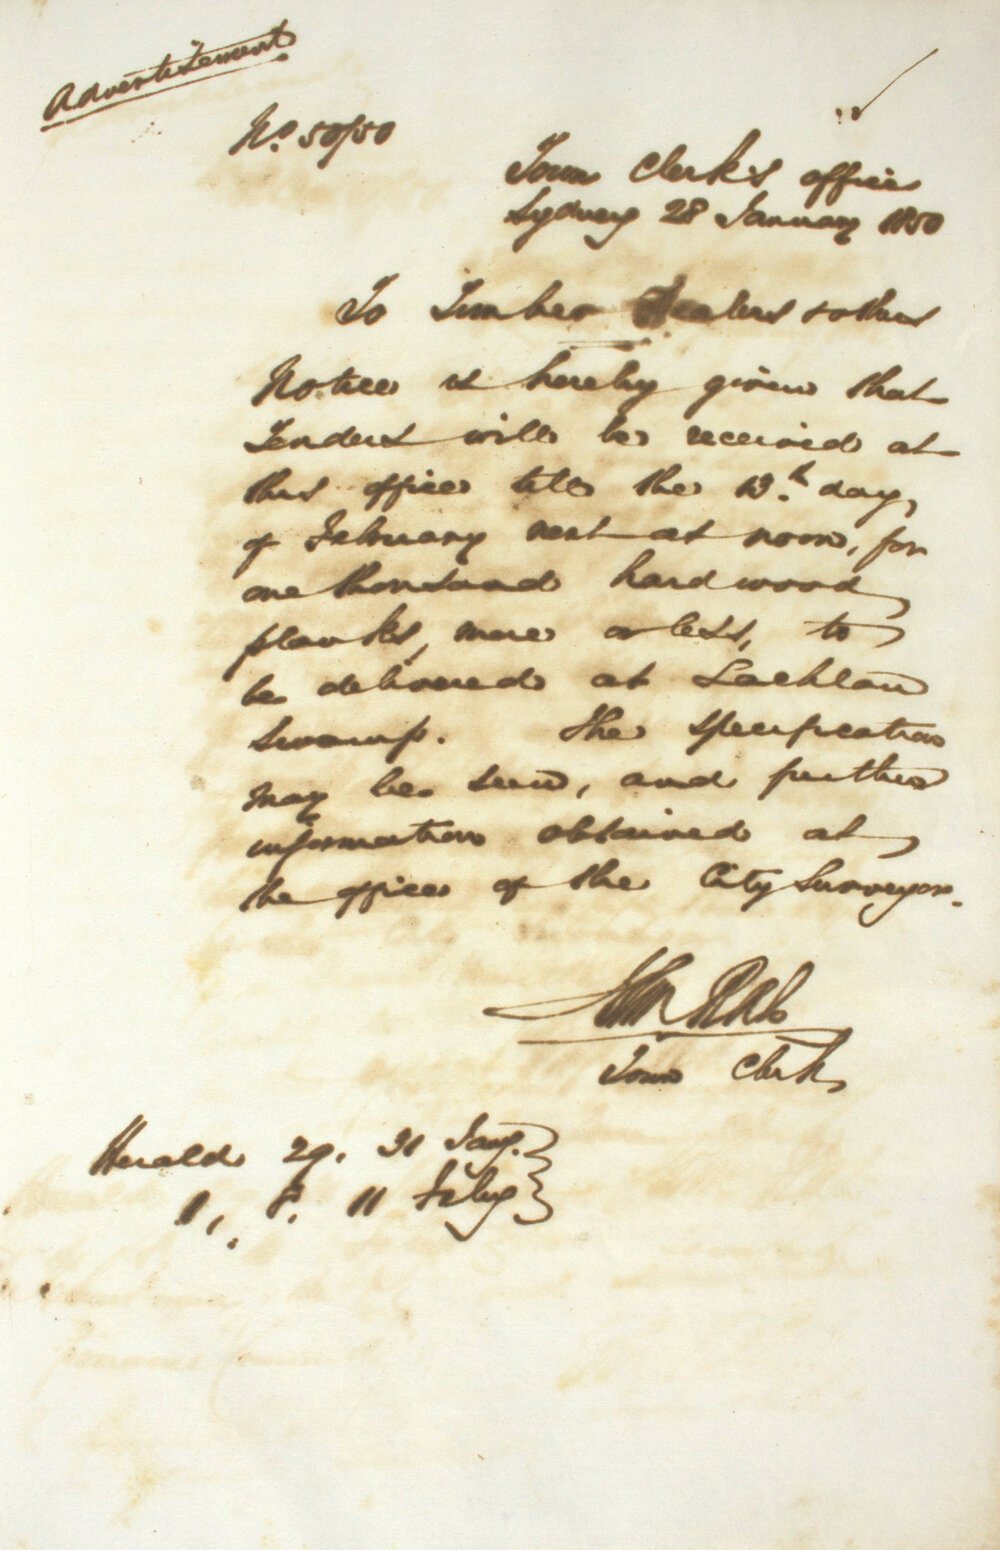 Advertisement
No. 50/50
Town Clerk's office
Sydney 28 January 1850
To Timber Dealers & others
Notice is hereby given that
Tenders will be received at
this office till the 13.th day
of February next at noon, for
one thousand hardwood
planks, more or less, to
be delivered at Lachlan
Swamp. The specification
may be seen, and further
information obtained at
the office of the City Surveyor.
Town Clerk
Herald 29. 31 Jany.
11 Feby